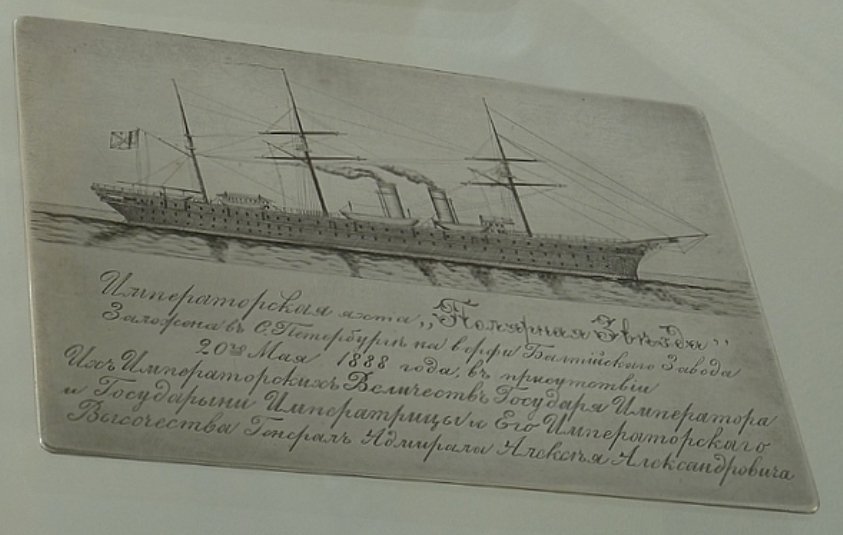 Императорская яхта „Полярная Звѣзда”
Заложена въ С.Петербургѣ на верфи Балтійскаго Завода
20го Мая 1888 года, въ присутствіи
Ихъ Императорскихъ Величествъ Государя Императора
и Государыни Императрицы и Его Императорскаго
Высочества Генералъ Адмирала Алексѣя Александровича